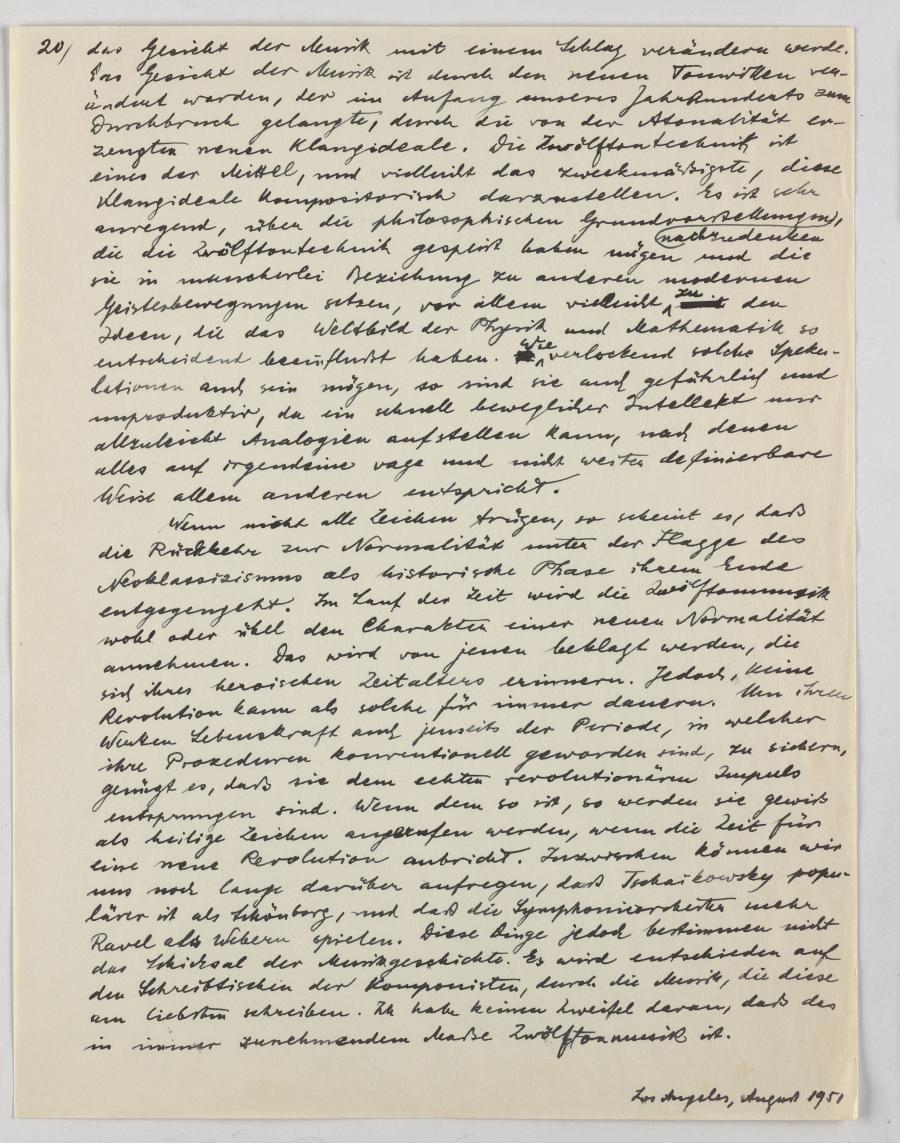 20/ das Gesicht der Musik mit einem Schlag verändern werde.
Das Gesicht der Musik ist durch den neuen Tonwillen ver-
ändert worden, der im Anfang unseres Jahrhunderts zum
Durchbruch gelangte, durch die von der Atonalität er-
zeugten neuen Klangideale. Die Zwölftontechnik ist
eines der Mittel, und vielleicht das zweckmäßigste, diese
Klangideale kompositorisch darzustellen. Es ist sehr
anregend, über die philosophischen Grundvorstellungen,
nachzudenken
die die Zwölftontechnik gespeist haben mögen und die
sie in mancherlei Beziehung zu anderen modernen
Geistesbewegungen setzen, vor allem vielleicht zu den
Ideen, die das Weltbild der Physik und Mathematik so
entscheidend beeinflußt haben. Wie verlockend solche Speku-
lationen auch sein mögen, so sind sie auch gefährlich und
unproduktiv, da ein schnell beweglicher Intellekt nur
allzuleicht Analogien aufstellen kann, nach denen
alles auf irgendeine vage und nicht weiter definierbare
Weise allem anderen entspricht.
Wenn nicht alle Zeichen trügen, so scheint es, daß
die Rückkehr zur Normalität unter der Flagge des
Neoklassizismus als historische Phase ihrem Ende
entgegengeht. Im Lauf der Zeit wird die Zwölftonmusik
wohl oder übel den Charakter einer neuen Normalität
annehmen. Das wird von jenen beklagt werden, die
sich ihres heroischen Zeitalters erinnern. Jedoch, keine
Revolution kann als solche für immer dauern. Um ihren
Werken Lebenskraft auch jenseits der Periode, in welcher
ihre Prozeduren konventionell geworden sind, zu sichern,
genügt es, daß sie dem echten revolutionären Impuls
entsprungen sind. Wenn dem so ist, so werden sie gewiß
als heilige Zeichen angerufen werden, wenn die Zeit für
eine neue Revolution anbricht. Inzwischen können wir
uns noch lange darüber aufregen, daß Tschaikowsky popu-
lärer ist als Schönberg, und daß die Symphonieorchester mehr
Ravel als Webern spielen. Diese Dinge jedoch bestimmen nicht
das Schicksal der Musikgeschichte. Es wird entschieden auf
den Schreibtischen der Komponisten, durch die Musik, die diese
am liebsten schreiben. Ich habe keinen Zweifel daran, daß das
in immer zunehmendem Maße Zwölftonmusik ist.
Los Angeles, August 1951